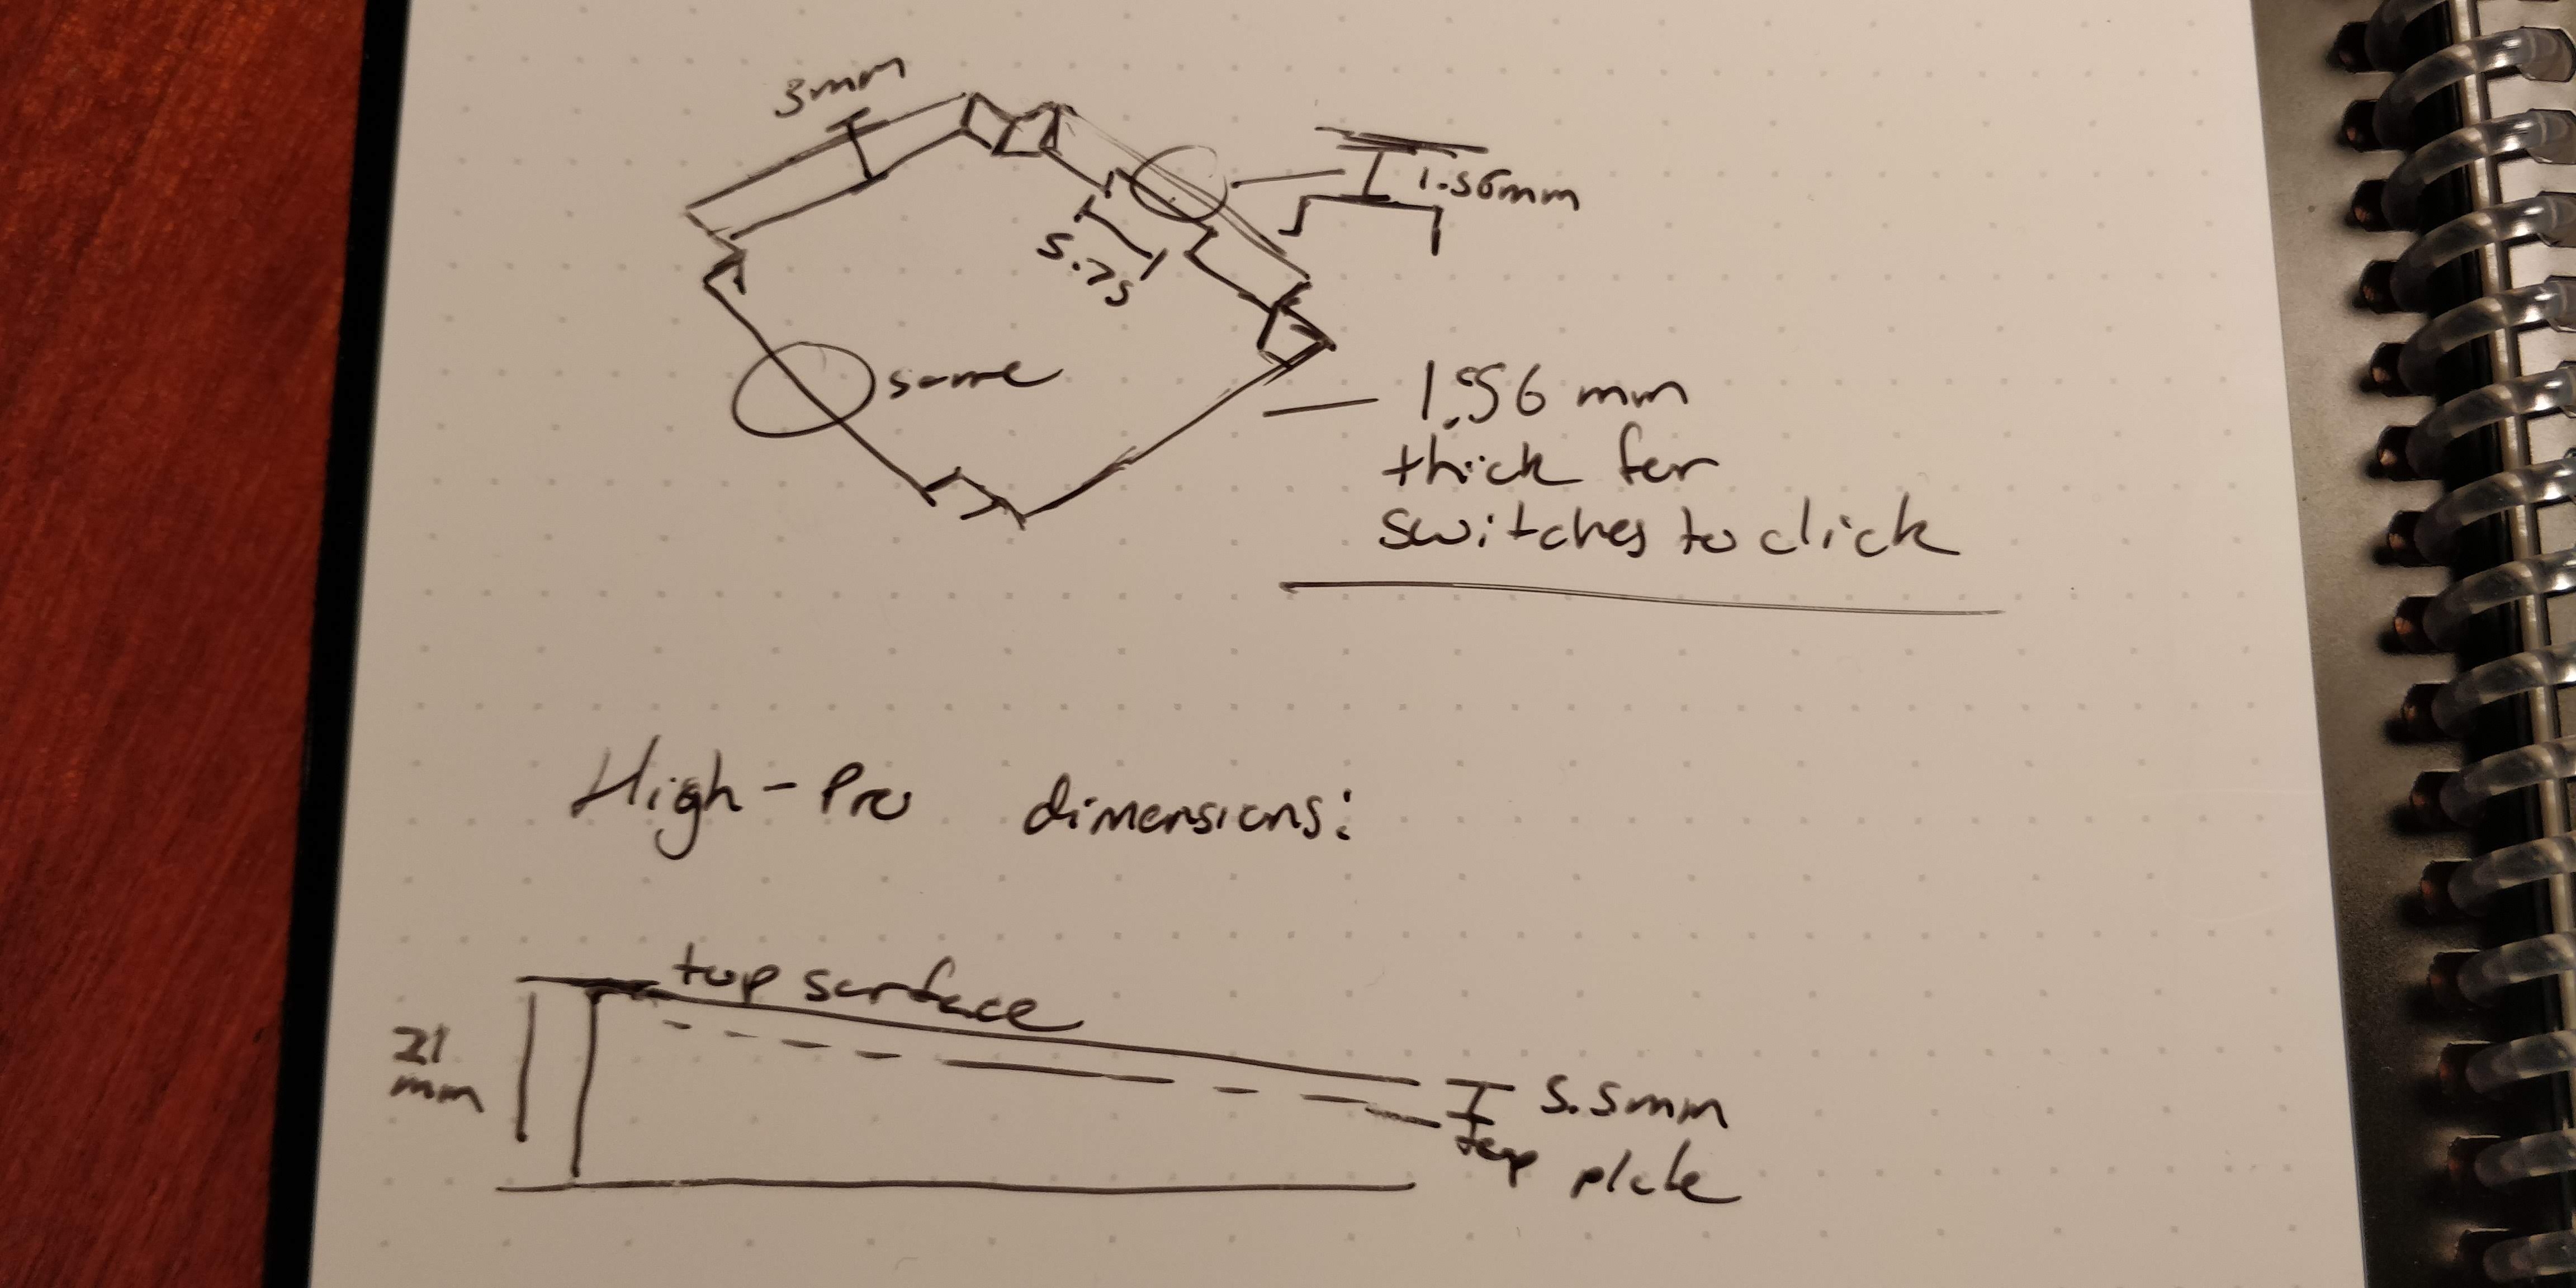 3mm
1.56mm
5.75
same
1.556 mm
thick for
switches to click
High-Pro dimensions:
top surface
21
mm
5.5mm
top plate